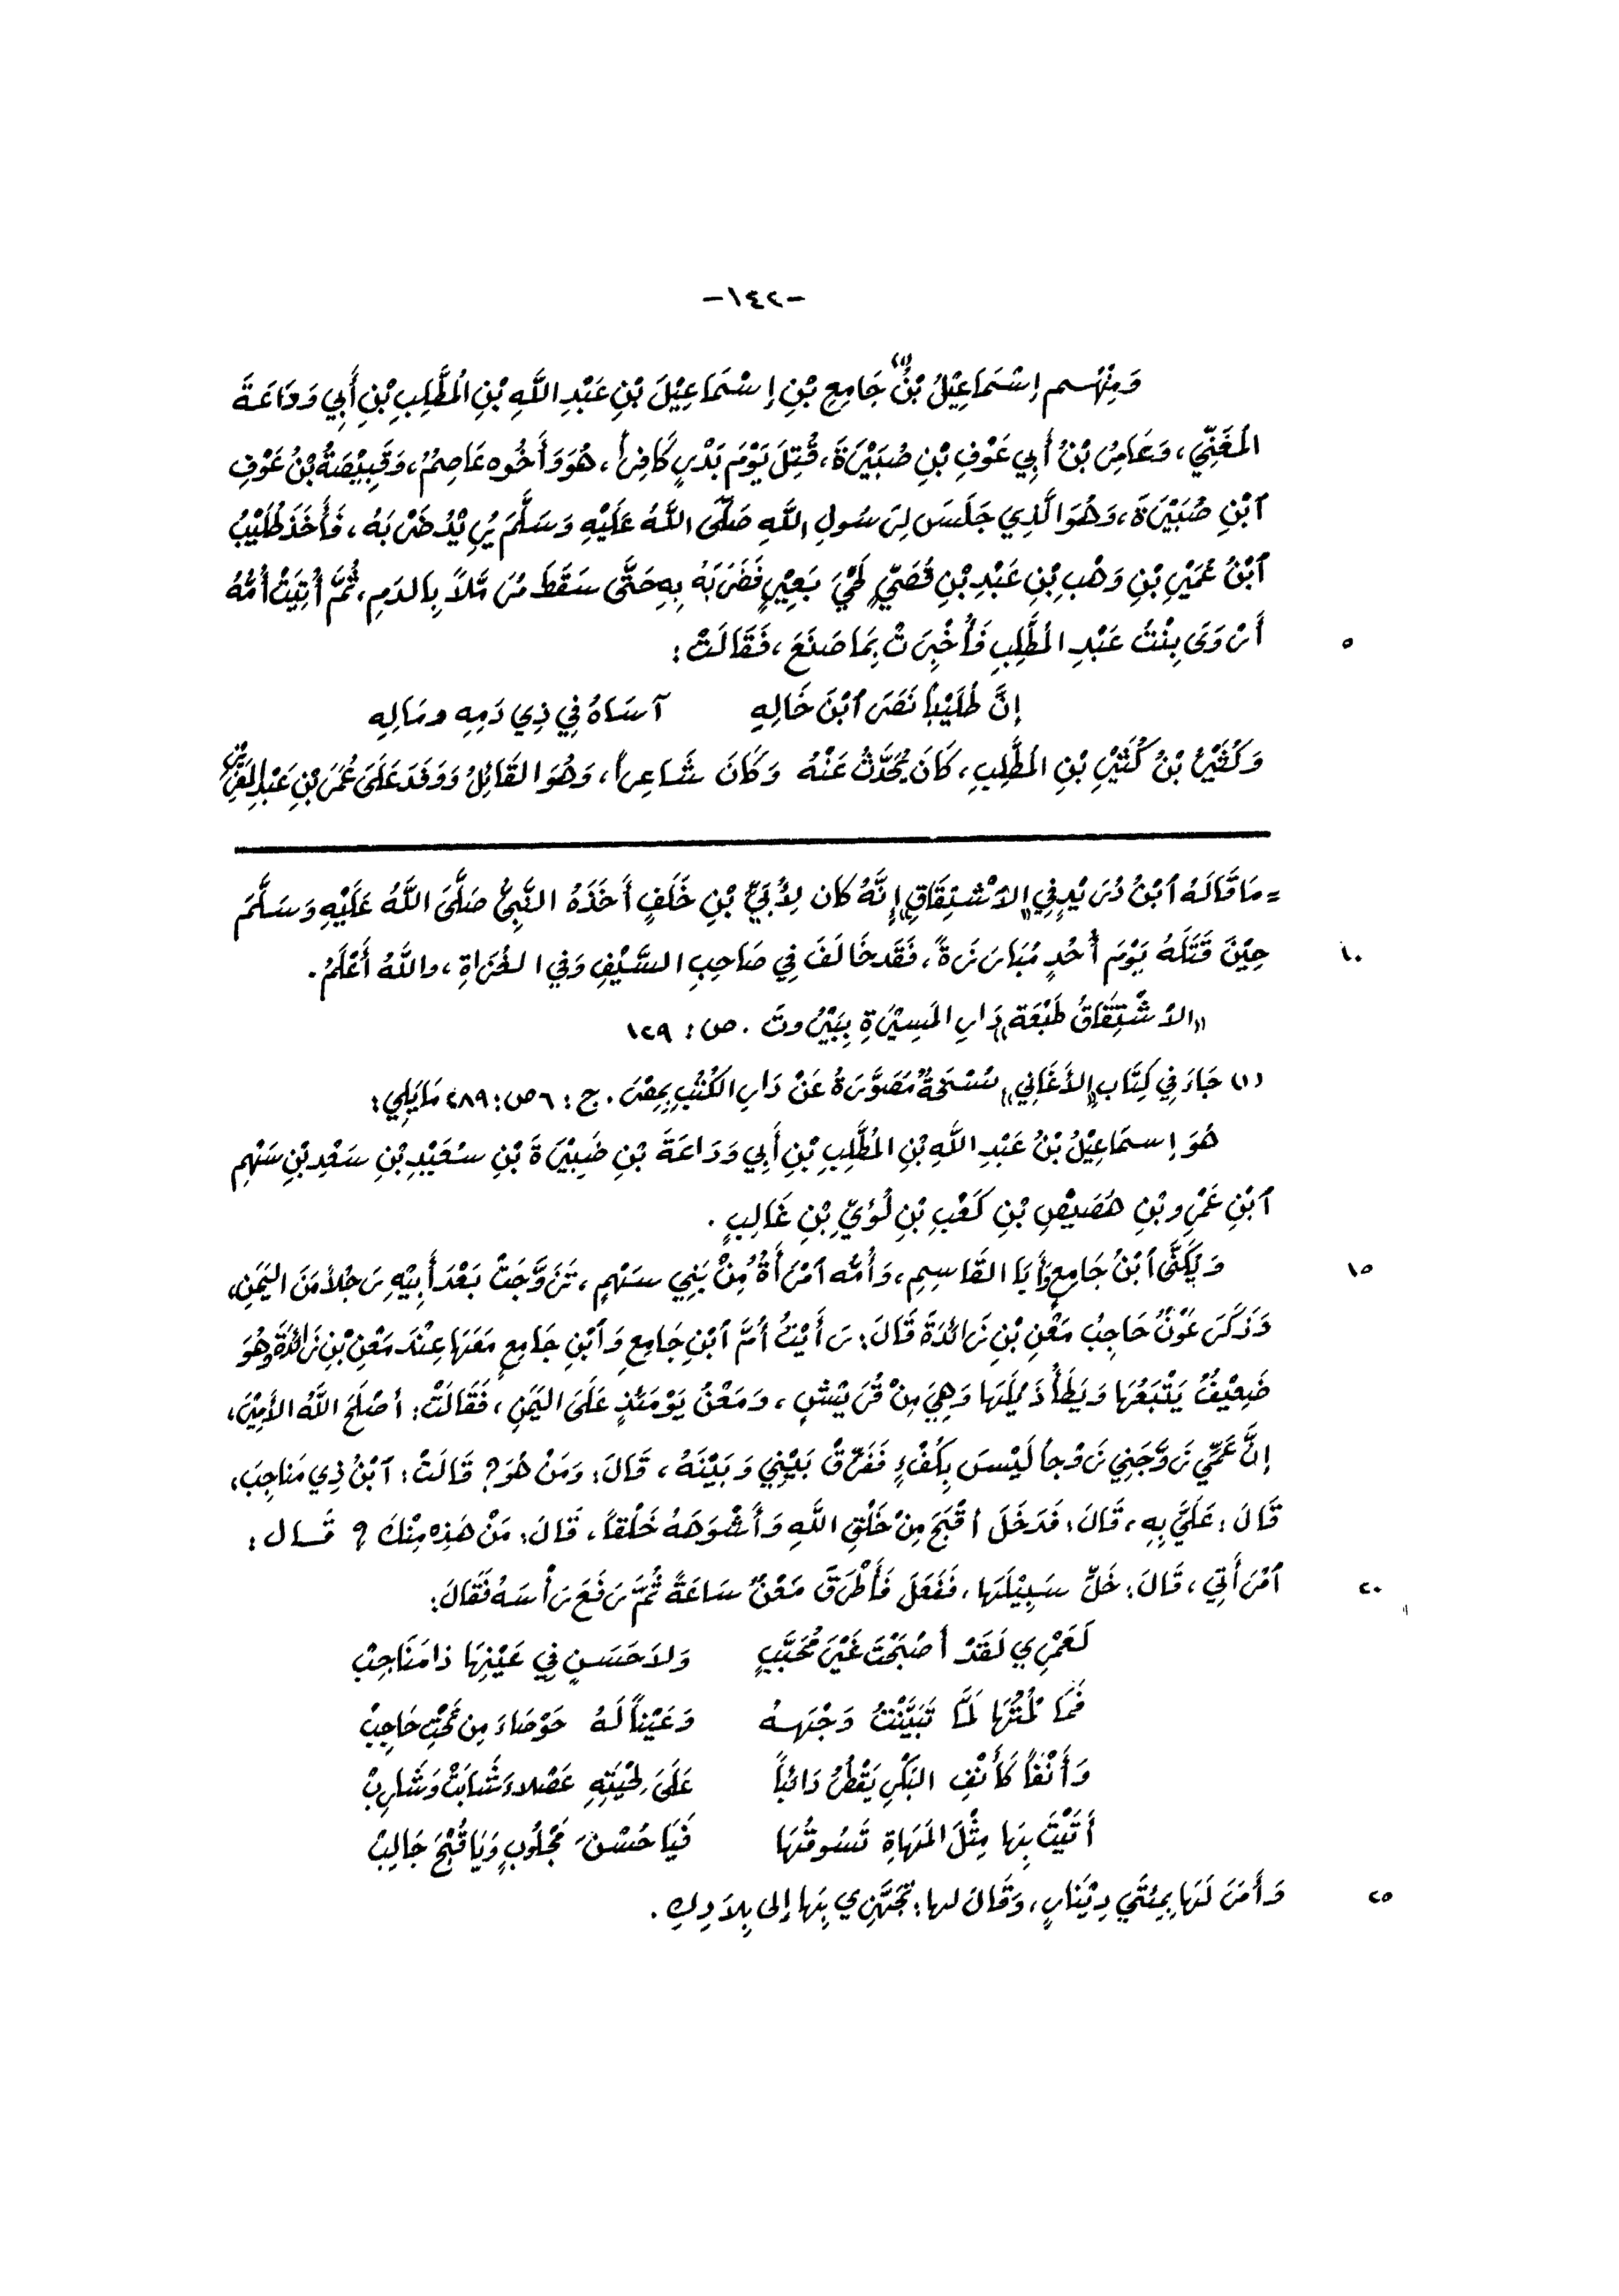 -١٤٢-
وَمِنْهُم إِسْمَاعِيْلُ بْنُ (١) جَامِعِ بْنِ إِسْمَاعِيْلَ بْنِ عَبْدِ اللَّهِ بْنِ الْمُطَّلِبِ بْنِ أَبِي وَدَاعَةَ
الْمُغَنِّي، وَعَامِرُ بْنُ أَبِي عَوْفِ بْنِ صُبَيْرَةَ، قُتِلَ يَوْمَ بَدْرٍ كَافِراً، هُوَ وَأَخُوه عَاصِمٌ، وَقَبِيْصَةُ بْنُ عَوْفِ
ٱبْنِ صُبَيْرَةَ، وَهُوَ الَّذِي جَلَسَ لِرَسُولِ اللَّهِ صَلَّى اللَّهُ عَلَيْهِ وَسَلَّمَ يُرِيْدُ ضَرْبَهُ، فَأَخَذَ طُلَيْبُ
ٱبْنُ عُمَيْرِ بْنِ وَهْبِ بْنِ عَبْدِ بْنِ قُصَيٍّ لَحْيَ بَعِيْرٍ فَضَرَبَهُ بِهِ حَتَّى سَقَطَ مُزَمَّلاً بِالدَمِ، ثُمَّ أُتِيَتْ أُمُّهُ
٥ أَرْوَى بِنْتُ عَبْدِ الْمُطَّلِبِ فَأُخْبِرَتْ بِمَا صَنَعَ، فَقَالَتْ:
إِنَّ طُلَيْباً نَصَرَ ٱبْنَ خَالِهِ آسَاهُ فِي ذِي دَمِهِ ومَالِهِ
وَكُثَيِّرُ بْنُ كُثَيِّرِ بْنِ الْمُطَّلِبِ، كَانَ يُحَدَّثُ عَنْهُ وَكَانَ شَاعِراً، وَهُوَ القَائِلُ وَوَفَدَ عَلَى عُمَرَ بْنِ عَبْدِ العَزِيْزِ
= مَا قَالَهُ ٱبْنُ دُرَيْدٍ فِي «الاشْتِقَاقِ» إِنَّهُ كان لِأُبَيِّ بْنِ خَلَفٍ أَخَذَهُ النَّبِيُّ صَلَّى اللَّهُ عَلَيْهِ وَسَلَّمَ
١٠ حِيْنَ قَتَلَهُ يَوْمَ أُحُدٍ مُبَارَزَةً، فَقَد خَالَفَ فِي صَاحِبِ السَّيْفِ وَفِي الغُزَاةِ، واللَّهُ أَعْلَمُ.
«الاشْتِقَاقُ طَبْعَة» دَارِ المَسِيْرَةِ بِبَيْرُوتَ . ص: ١٢٩
(١) جَاءَ فِي كِتَابِ «الأَغَانِي» نُسْخَةٌ مُصَوَّرَةُ عَنْ دَارِ الكُتُبِ بِمِصْرَ . ج: ٦ ص: ٢٨٩ مَا يَلِي:
هُوَ إِسمَاعِيْلُ بْنُ عَبْدِ اللَّهِ بْنِ المُطَّلِبِ بْنِ أَبِي وَدَاعَةَ بْنِ ضُبَيْرَةَ بْنِ سُعَيْدِ بْنِ سَعْدِ بْنِ سَهْمِ
ٱبْنِ عَمْرِو بْنِ هُصَيْصِ بْنِ كَعْبِ بْنِ لُؤَيِّ بْنِ غَالِبٍ .
١٥ وَيُكَنَّى ٱبْنُ جَامِعٍ أَبَا القَاسِمِ، وَأُمُّه ٱمْرَأَةٌ مِنْ بَنِي سَهْمٍ، تَزَوَّجَتْ بَعْدَ أَبِيْهِ رَجُلاً مَنَ اليَمَنِ،
وَذَكَرَ عَوْنٌ حَاجِبُ مَعْنِ بْنِ زَائدَةَ قَالَ: رَأَيْتُ أُمَّ ٱبْنِ جَامِعٍ وَٱبْنِ جَامِعٍ مَعَهَا عِنْدَ مَعْنِ بْنِ زَائدَةَ وهُوَ
ضَعِيْفٌ يَتْبَعُهَا وَيَطَأُ ذَيْلَهَا وَهِيَ مِنْ قُرَيْشٍ، وَمَعْنُ يَوْمَئذٍ عَلَى اليَمَنِ، فَقَالَتْ: أصْلَحَ اللَّهُ الأمِيْرَ،
إنَّ عَمِّي زَوَّجَنِي زَوْجاً لَيْسَ بِكُفْءٍ فَفَرِّقْ بَيْنِي وَبَيْنَهُ، قَالَ: وَمَنْ هُوَ؟ قَالَتْ: ٱبْنُ ذِي مَنَاجِبَ،
قَالَ: عَلَيَّ بِهِ، قَالَ: فَدَخَلَ أقْبَحَ مِنْ خَلْقِ اللَّهِ وَأَشْوَهَهُ خَلْقاً، قَالَ: مَنْ هَذِهِ مِنْكَ؟ قَال:
٢٠ ٱمْرَأَتِي، قَالَ: خَلِّ سَبِيْلَهَا، فَفَعَلَ فَأَطْرَقَ مَعْنٌ سَاعَةً ثُمَّ رَفَعَ رَأْسَهُ فَقَالَ:
لَعَمْرِي لَقَدْ أصْبَحْتَ غَيْرَ مُحَبَّبٍ وَلاَ حَسَنٍ فِي عَيْنِهَا ذا مَنَاجِبْ
فَمَا لُمْتُهَا لَمَّا تَبَيَّنْتُ وَجْهَهُ وَعَيْناً لَهُ حَوْصَاءَ مِن تَحْتِ حَاجِبْ
وَأَنْفاً كَأَنْفِ البَكْرِ يَقْطُرُ دَائباً عَلَى لِحْيَتِهِ عَصْلاءَ شَابَتْ وَشَارِبْ
أَتَيْتَ بِهَا مِثْلَ المَهَاةِ تَسُوقُهَا فَيَا حُسْنَ مَجْلُوبٍ وَيَا قُبْحَ جَالِبْ
٢٥ وَأَمَرَ لَهَا بِمِئتَي دِيْنَارٍ، وَقَالَ لها: تَجَهَّزِي بِهَا إلى بِلاَدِكِ .